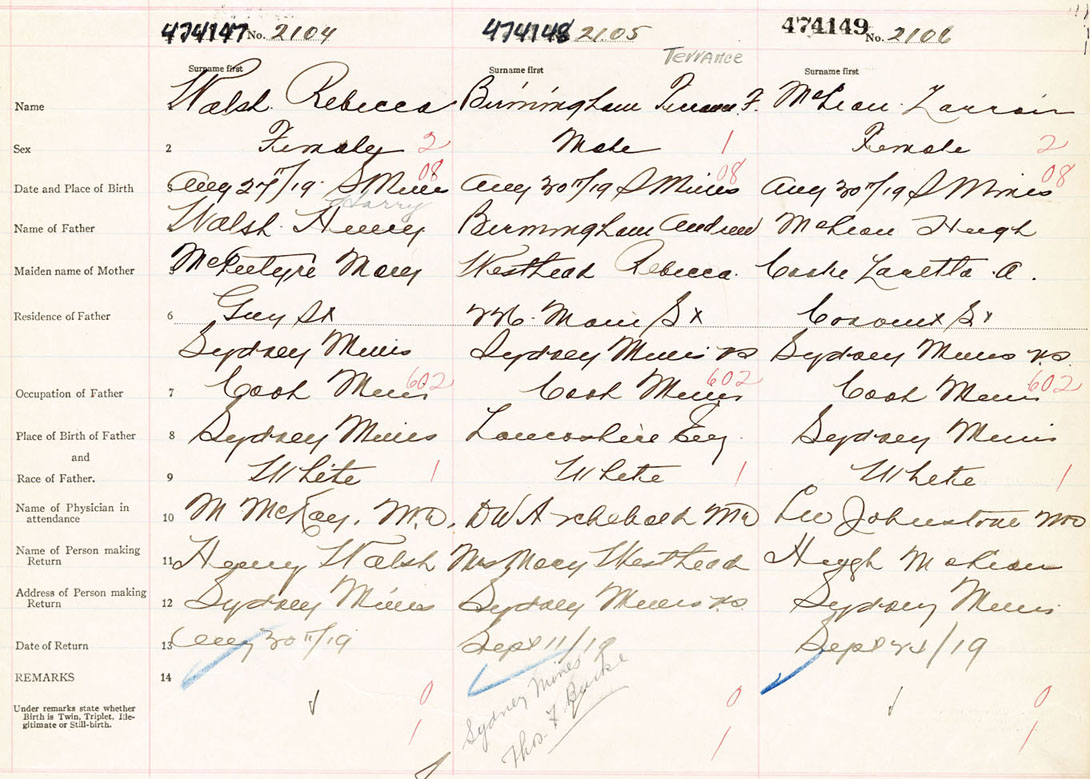 474147 No. 2104 474148 2105 474149 No. 2106
Terrance
Surname first Surname first Surname first
Name 1 Walsh Rebecca Birmingham F. McLean
Sex 2 Female 2 Male 1 Female 2
08 08 08
Date and Place of Birth Aug 27th/19 S Mines Aug 30th/19 S Mines Aug 30th/19 S Mines
Harry
Name of Father Walsh Henry Birmingham Andrew McLean Hugh
Maiden name of Mother Mary Westhead Rebecca. Cooke Laretta A.
Residence of Father 6 Guy St 226 Main St St
Sydney Mines Sydney Mines NS Sydney Mines N.S.
602 602 602
Occupation of Father 7 Coal Miner Coal Miner Coal Miner
Place of Birth of Father 8 Sydney Mines Lancashire Eng. Sydney Mines
and
Race of Father. 9 White 1 White 1 White 1
Name of Physician in
attendance 10 M McKay, M.D. DW Archibald MD Johnstone MD
Name of Person making
Return 11 Henry Walsh Mrs Mary Westhead Hugh McLean
Address of Person making
Return 12 Sydney Mines Sydney Mines NS. Sydney Mines
Date of Return 13 Aug 30th/19 Sept 11/19 Sept 24/19
REMARKS 14
Sydney Mines
Thos. F Burke
Under remarks state whether
Birth is Twin, Triplet, Ille-
gitimate or Still-birth.
0 0 0
1 1 1